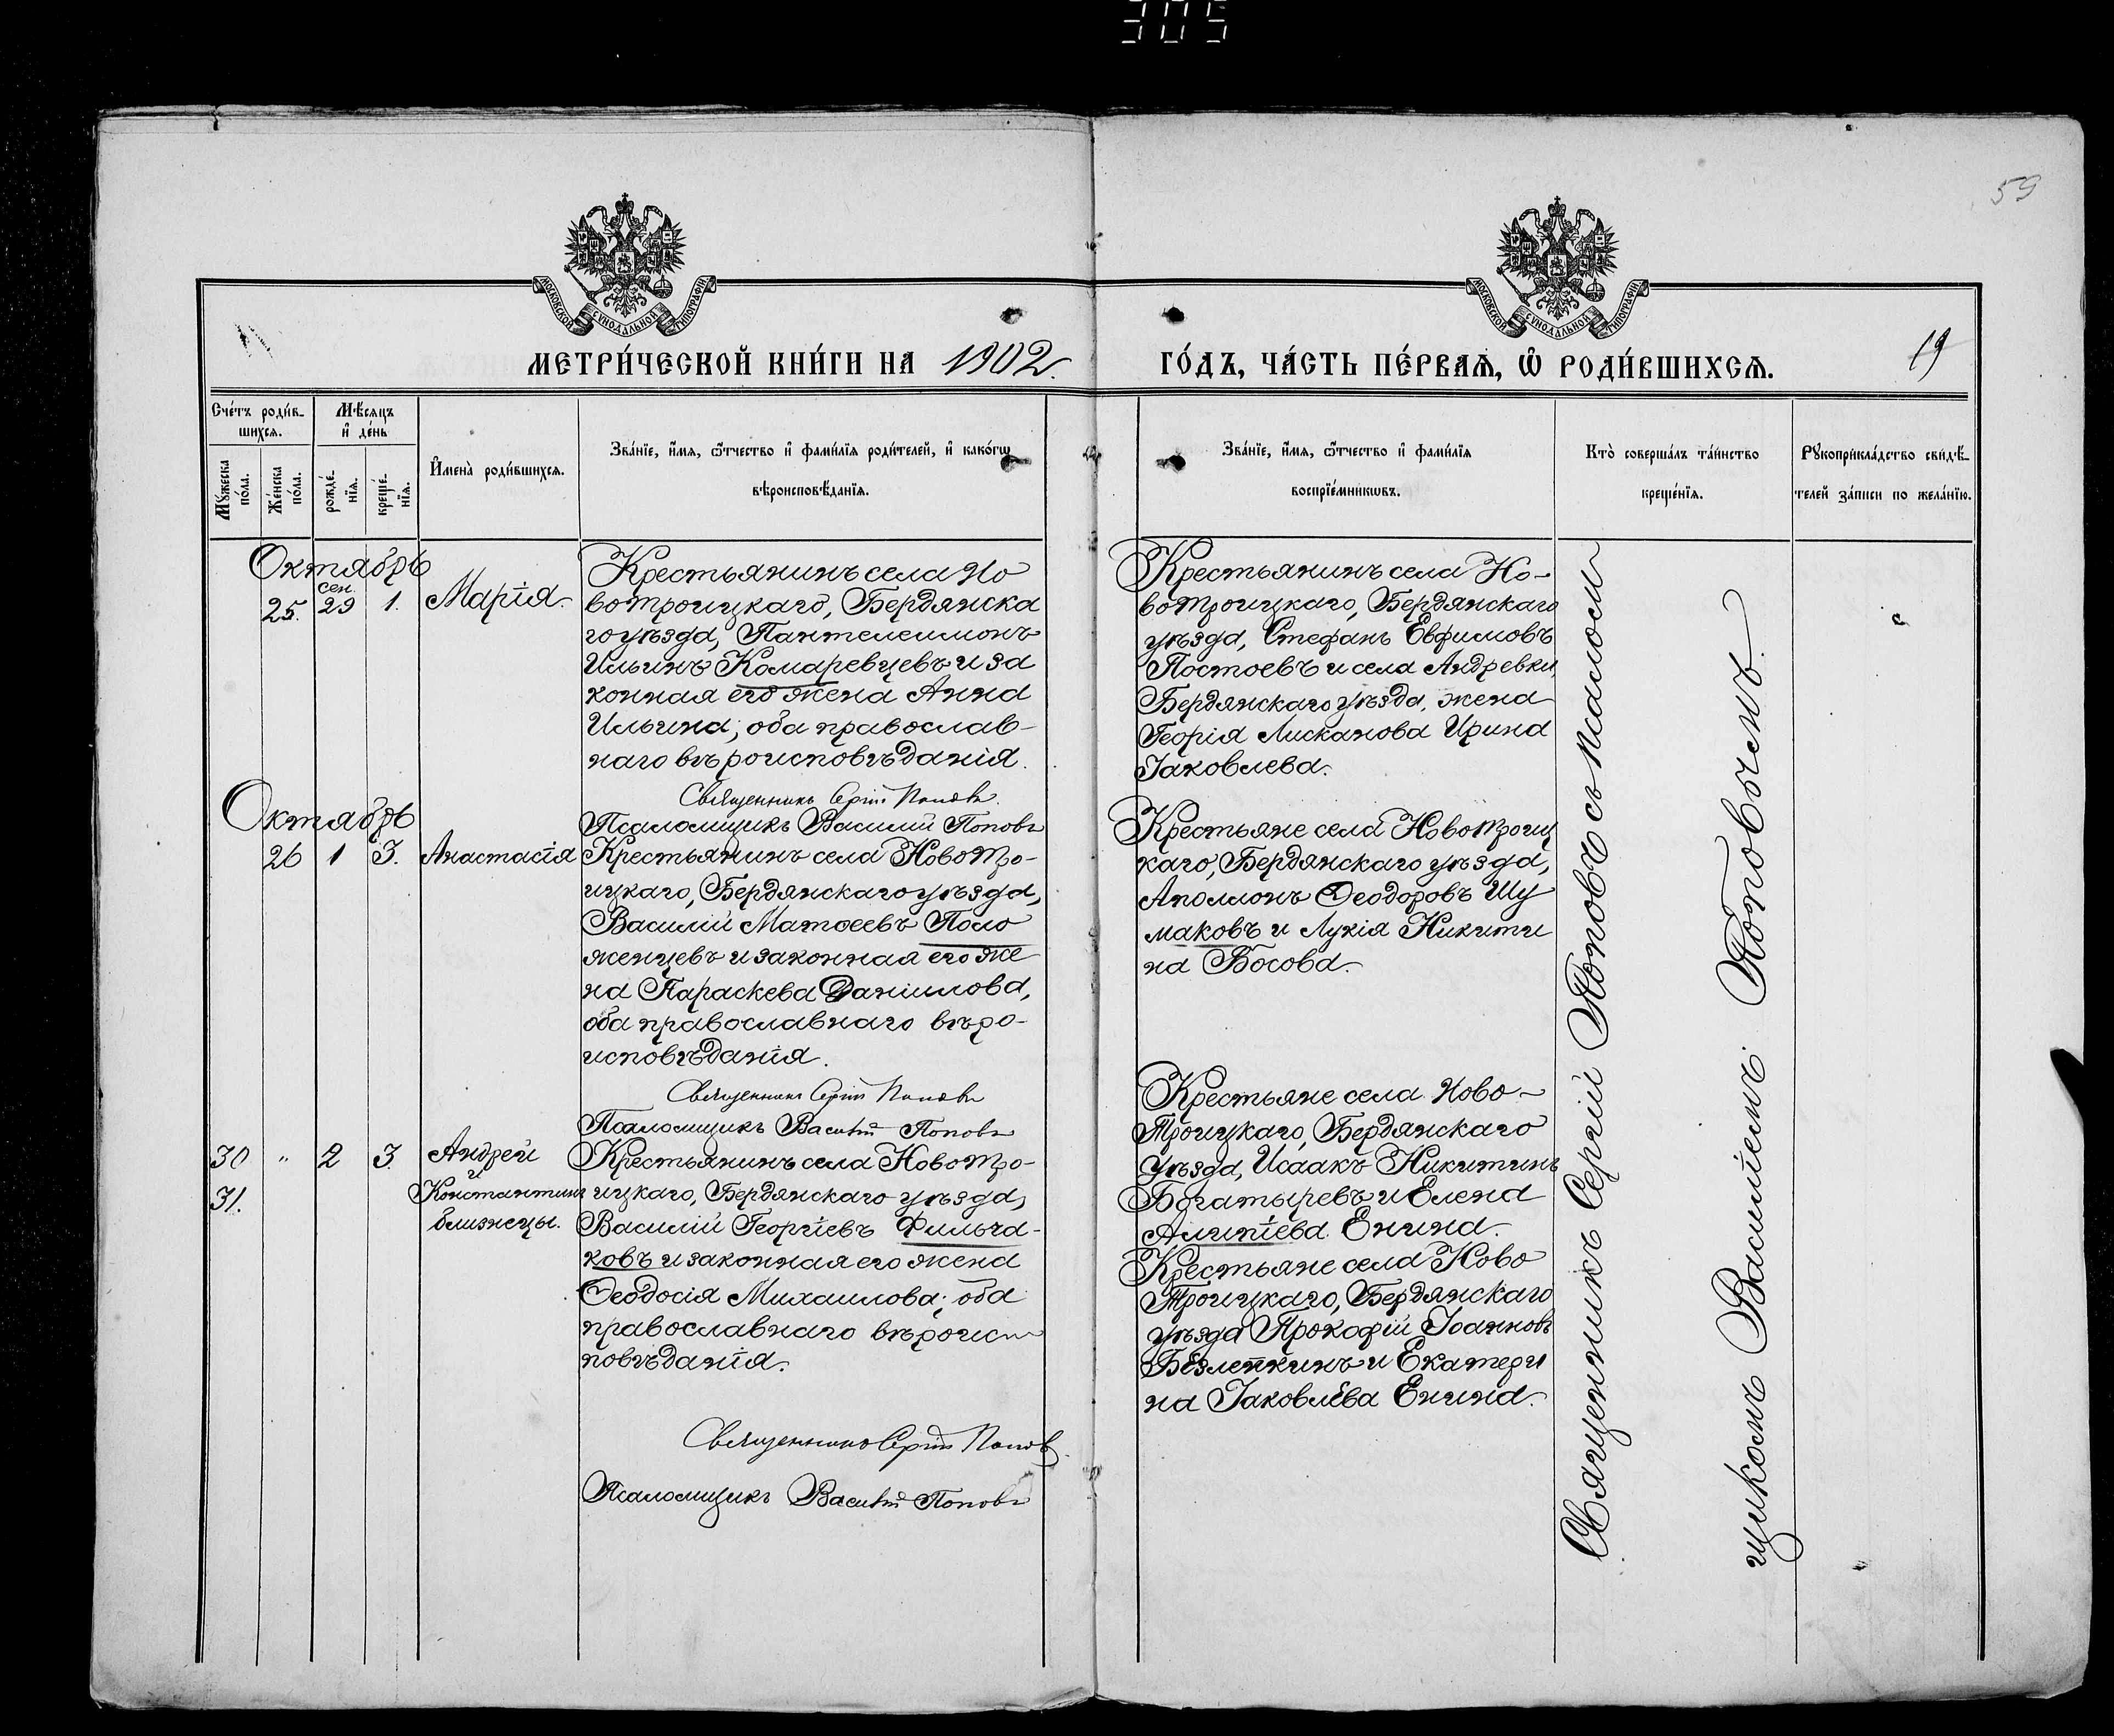 305
59
МОСКОВСКОЙ СУНОДАЛЬНОЙ ТИПОГРАФІИ
МОСКОВСКОЙ СУНОДАЛЬНОЙ ТИПОГРАФІИ
МЕТРИ́ЧЕСКОЙ КНИ́ГИ НА 1902.
ГО́ДЪ, ЧА́СТЬ ПЕ́РВАѦ, Ѽ РОДИ́ВШИХСѦ.
19
Сче́тъ роди́в-
шихся.
Мѣ́сяцъ
и҆ де́нь
Мꙋ́жеска
по́ла.
Же́нска
по́ла.
рожде́-
нїя.
креще́-
нїя.
И҆мена̀ роди́вшихся.
Зва́нїе, и҆́мя, ѻ҆́тчество и҆ фами́лїя роди́телей, и҆ како́гѡ
вѣроисповѣ́данїя.
Зва́нїе, и҆́мя, ѻ҆́тчество и҆ фами́лїя
воспрїе́мникѡвъ.
Кто̀ соверша́лъ та́инство
креще́нїя.
Рꙋкоприкла́дство свидѣ́-
телей за́писи по жела́нїю.
Октябрь
сен.
25. 29 1. Марія.
Крестьянинъ села Но
вотроицкаго, Бердянска
го уѣзда, Пантелеимонъ
Ильинъ Комаревцевъ и за
конная его жена Анна
Ильина; оба православ-
наго вѣроисповѣданія.
Священникъ Сергій Поповъ.
Псаломщикъ Василій Поповъ
Крестьянинъ села Но-
вотроицкаго, Бердянскаго
уѣзда, Стефанъ Евфимовъ
Постоевъ и села Андревки,
Бердянскаго уѣзда, жена
Георія Лисканова Ирина
Іаковлева.
Октябрь
26 1 3. Анастасія
Крестьянинъ села Новотро-
ицкаго, Бердянскаго уѣзда,
Василій Матѳеевъ Поло
женцевъ и законная его же
на Параскева Даніилова,
оба православнаго вѣро-
исповѣданія.
Священникъ Сергій Поповъ
Псаломщикъ Василій Поповъ
Крестьяне села Новотроиц
каго, Бердянскаго уѣзда,
Аполлонъ Ѳеодоровъ Шу
маковъ и Лукія Никити
на Босова.
30 " 2 3. Андрей
и
31. Константинъ
близнецы.
Крестьянинъ села Новотро-
ицкаго, Бердянскаго уѣзда,
Василій Георгіевъ Фильча-
ковъ и законная его жена
Ѳеодосія Михаилова; оба
православнаго вѣроис
повѣданія.
Священникъ Сергій Поповъ.
Псаломщикъ Василій Поповъ
Крестьяне села Ново-
Троицкаго, Бердянскаго
уѣзда, Исаакъ Никитинъ
Богатыревъ и Елена
Алипіева Енина.
Крестьяне села Ново
Троицкаго, Бердянскаго
уѣзда Прокофій Іоанновъ
Безлепкинъ и Екатери
на Іаковлева Енина.
Священникъ Сергій Поповъ съ псалом
щикомъ Василіемъ Поповымъ.